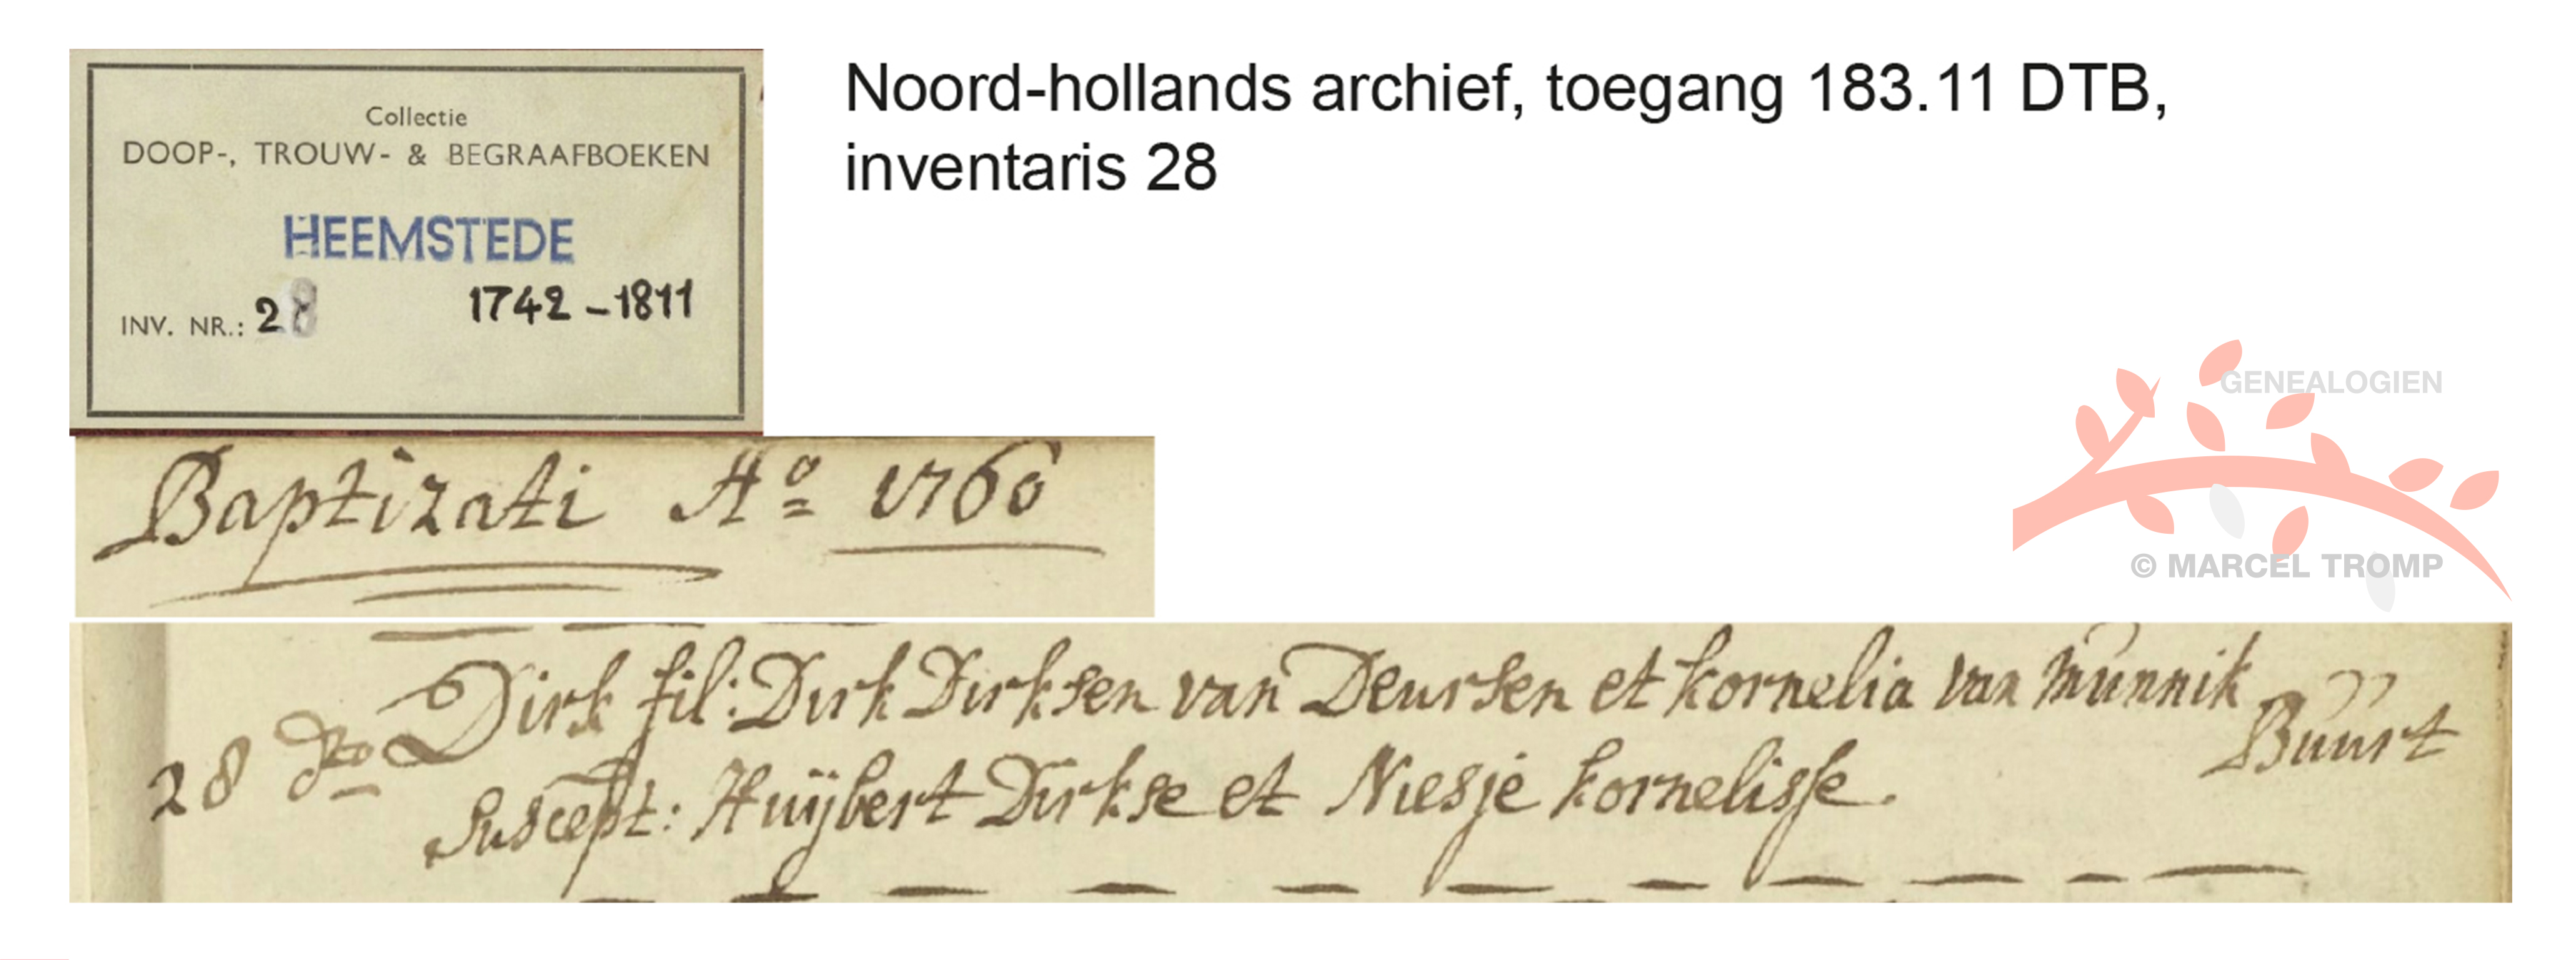 Collectie
DOOP-, TROUW- & BEGRAAFBOEKEN
HEEMSTEDE
INV. NR.: 28 1742-1811
Noord-hollands archief, toegang 183.11 DTB,
inventaris 28
GENEALOGIEN
© MARCEL TROMP
Baptizati Aº 1760
28 dto Dirk fil: Dirk Dirksen van Deursen et kornelia van munnik
Buurt
Suscept: Huijbert Dirkse et Niesje kornelisse.